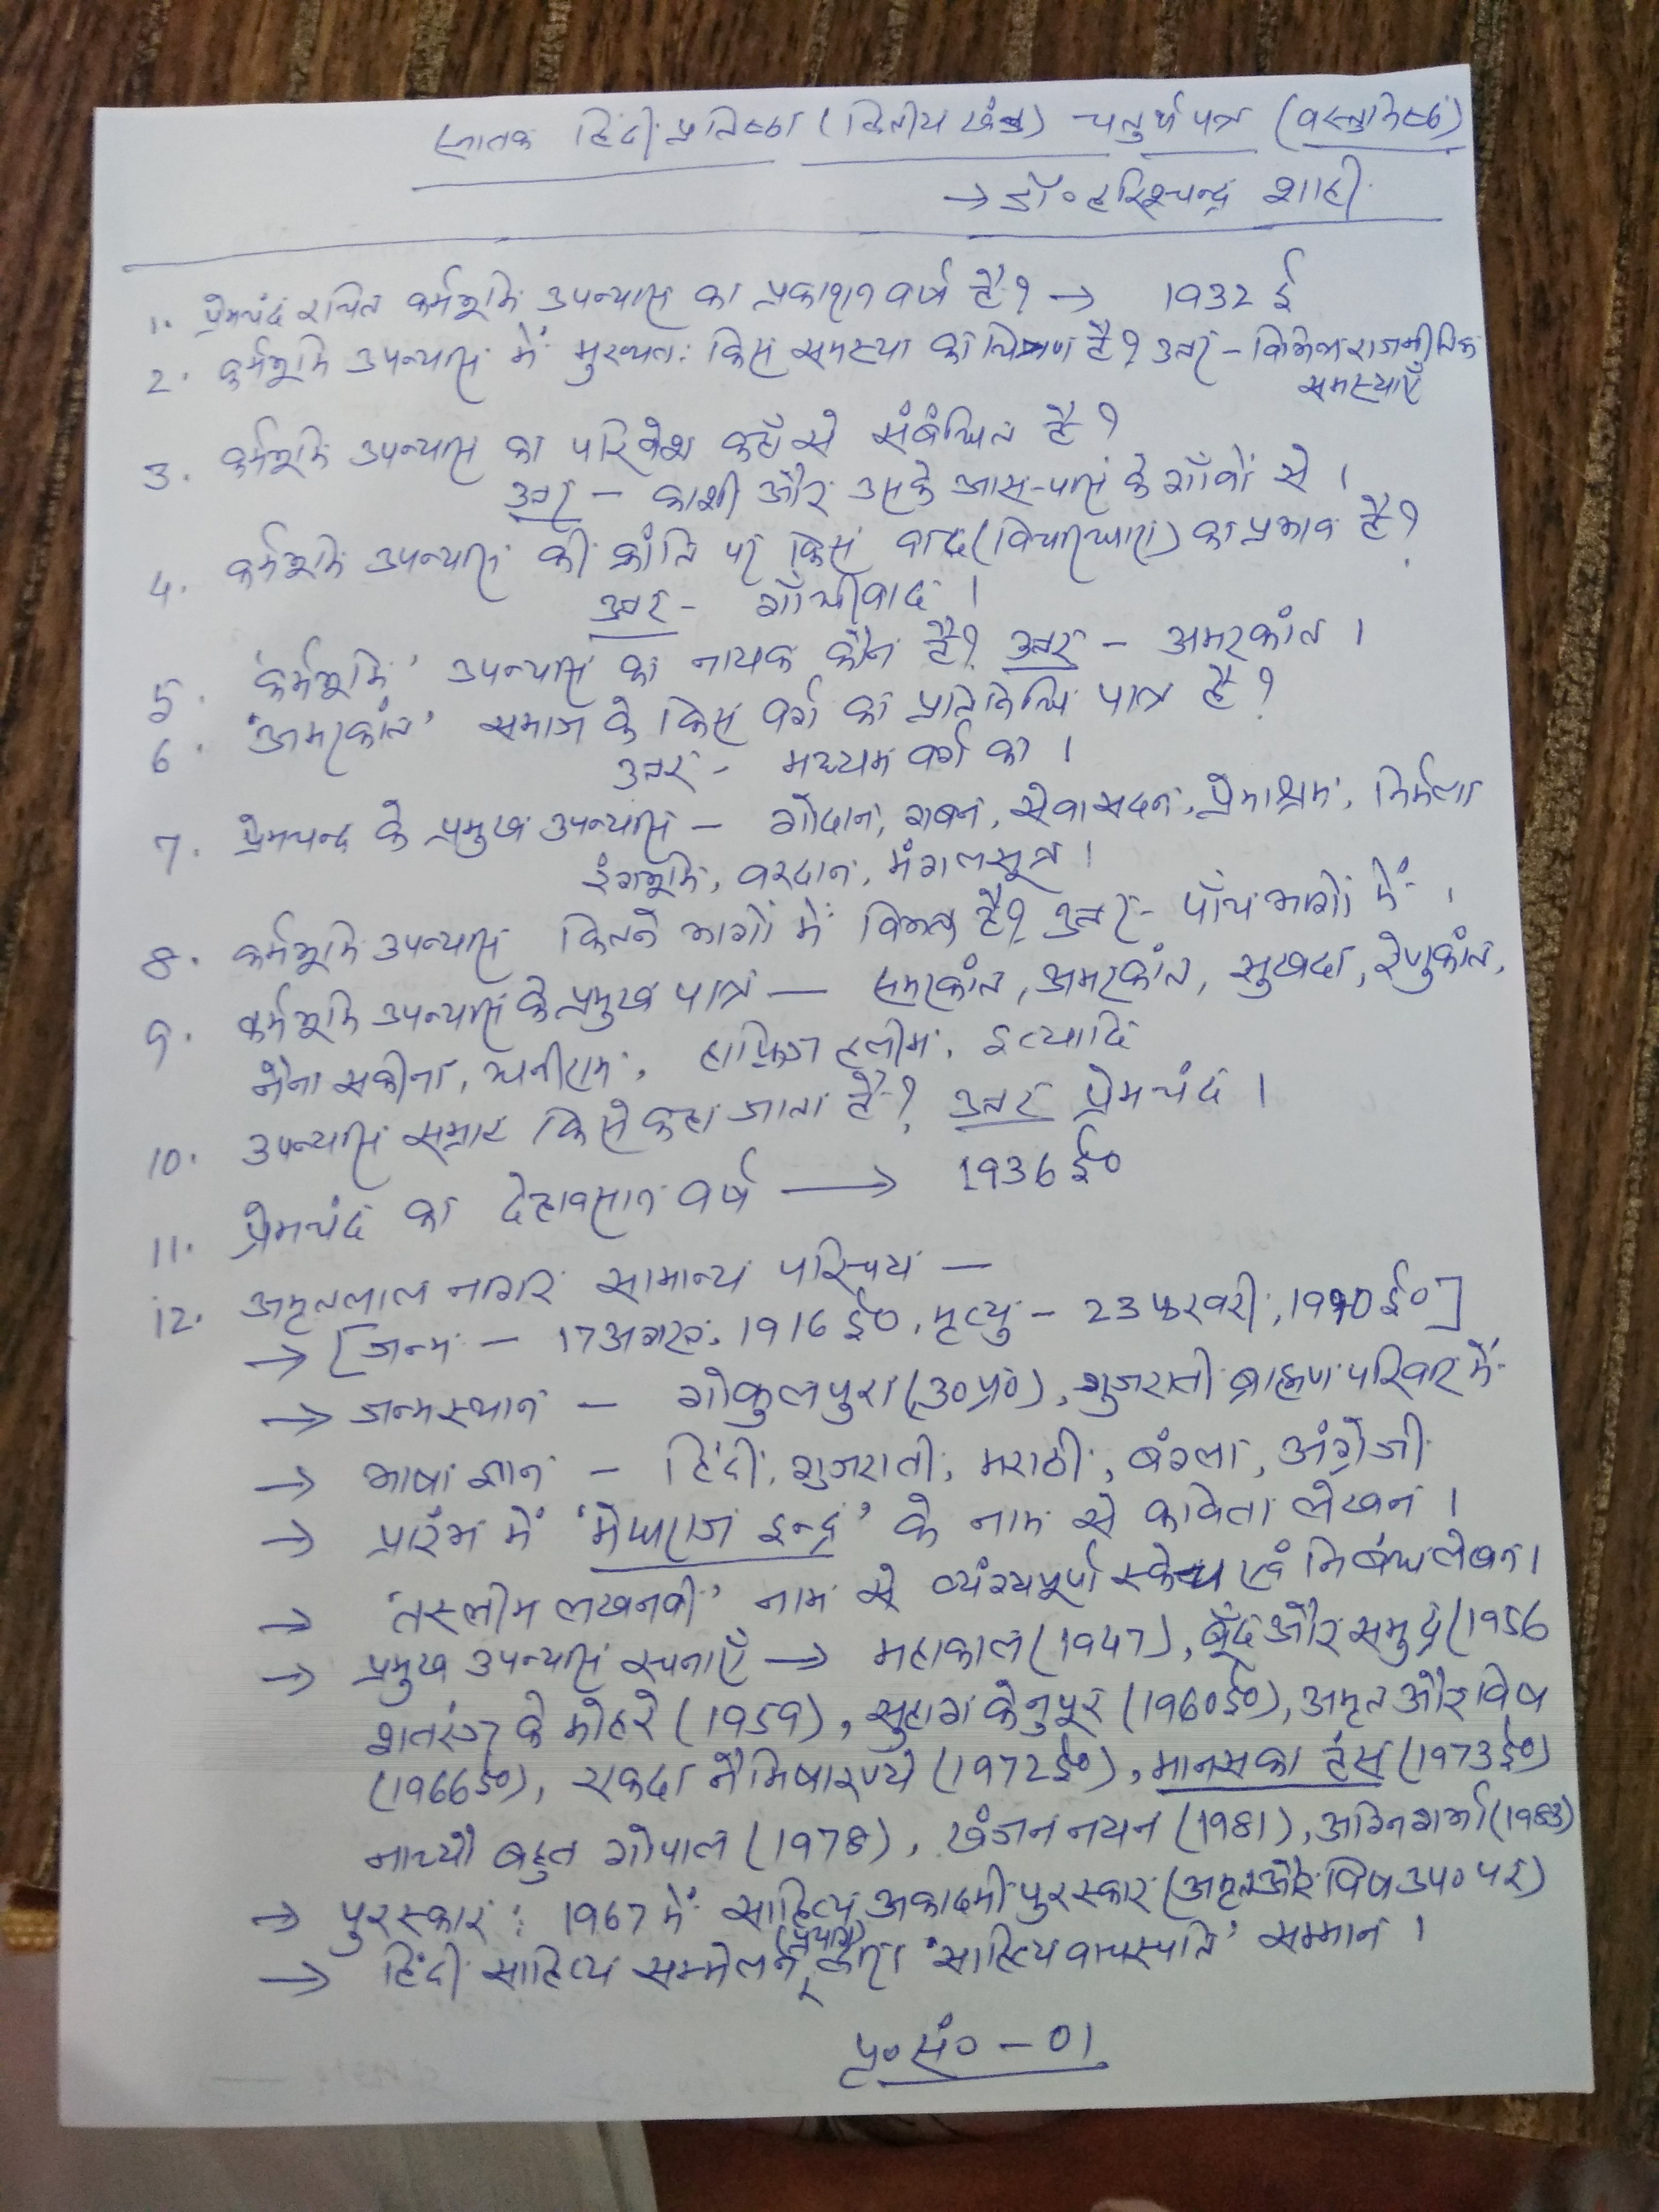 स्नातक हिंदी प्रतिष्ठा (द्वितीय खंड) - चतुर्थ पत्र (वस्तुनिष्ठ)
→ डॉ० हरिश्चन्द्र शाही
1. प्रेमचंद रचित कर्मभूमि उपन्यास का प्रकाशन वर्ष है? → 1932 ई
2. कर्मभूमि उपन्यास में मुख्यतः किस समस्या का चित्रण है? उत्तर - विभिन्न राजनीतिक
समस्याएँ
3. कर्मभूमि उपन्यास का परिवेश कहाँ से संबंधित है?
उत्तर - काशी और उसके आस-पास के गाँवों से ।
4. कर्मभूमि उपन्यास की क्रांति पर किस वाद (विचारधारा) का प्रभाव है?
उत्तर - गाँधीवाद ।
5. 'कर्मभूमि' उपन्यास का नायक कौन है? उत्तर - अमरकांत ।
6. 'अमरकांत' समाज के किस वर्ग का प्रतिनिधि पात्र है?
उत्तर - मध्यम वर्ग का ।
7. प्रेमचन्द के प्रमुख उपन्यास - गोदान, गबन, सेवासदन, प्रेमाश्रम, निर्मला
रंगभूमि, वरदान, मंगलसूत्र ।
8. कर्मभूमि उपन्यास कितने भागों में विभक्त है? उत्तर - पाँच भागों में ।
9. कर्मभूमि उपन्यास के प्रमुख पात्र — समरकांत, अमरकांत, सुखदा, रेणुकांत,
नैना सकीना, धनीराम, हाफ़िज हलीम, इत्यादि
10. उपन्यास सम्राट किसे कहा जाता है? उत्तर प्रेमचंद ।
11. प्रेमचंद का देहावसान वर्ष → 1936 ई०
12. अमृतलाल नागर सामान्य परिचय —
→ [जन्म - 17 अगस्त, 1916 ई०, मृत्यु - 23 फरवरी, 1990 ई०]
→ जन्मस्थान - गोकुलपुरा (उ०प्र०), गुजराती ब्राह्मण परिवार में
→ भाषा ज्ञान - हिंदी, गुजराती, मराठी, बंगला, अंग्रेजी
→ प्रारंभ में 'मेघराज इन्द्र' के नाम से कविता लेखन ।
→ 'तस्लीम लखनवी' नाम से व्यंग्यपूर्ण स्केच एवं निबंध लेखन ।
→ प्रमुख उपन्यास रचनाएँ → महाकाल (1947), बूँद और समुद्र (1956
शतरंज के मोहरे (1959), सुहाग के नुपूर (1960ई०), अमृत और विष
(1966ई०), एकदा नैमिषारण्ये (1972ई०), मानस का हंस (1973ई०)
नाच्यौ बहुत गोपाल (1978), खंजन नयन (1981), अग्निगर्भा (1983)
→ पुरस्कार : 1967 में साहित्य अकादमी पुरस्कार (अमृत और विष उप० पर)
→ हिंदी साहित्य सम्मेलन, (प्रयाग) द्वारा 'साहित्य वाचस्पति' सम्मान ।
पृ० सं० - 01